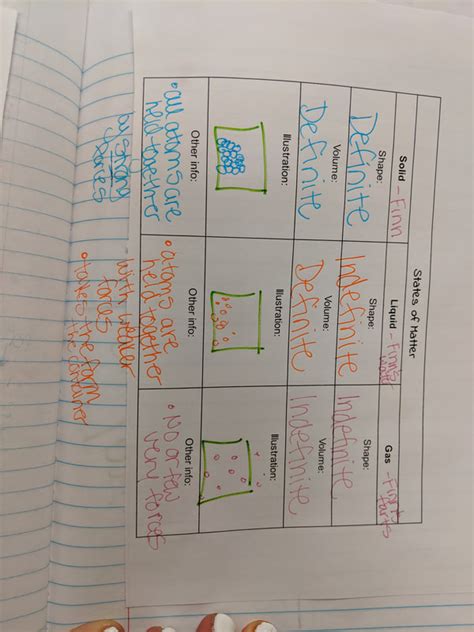 States of Matter
Solid - Finn
Liquid - Finn's
Gas - Finn's farts
Shape:
Definite
Shape:
Indefinite
Shape:
Indefinite
Volume:
Definite
Volume:
Definite
Volume:
Indefinite
Illustration:
Illustration:
Illustration:
Other info:
• all atoms are
held together
by strong
forces
Other info:
• atoms are
held together
with weaker
forces
• takes the form
the container
Other info:
• No or few
very forces